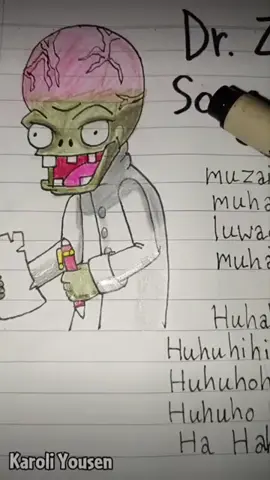 Dr. Z
So
muzai
muha
luwa
muha
Huha
Huhuhihi
Huhuhoh
Huhuho
Ha Hah
Karoli Yousen